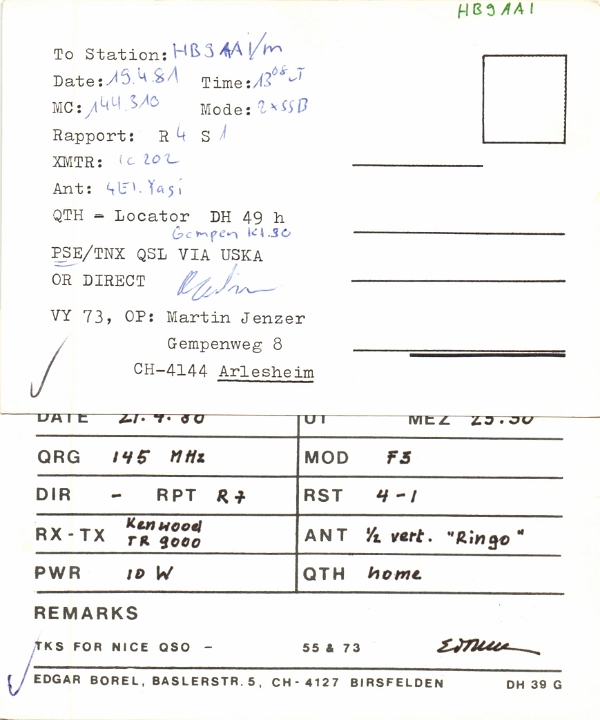 HB9AAI
To Station: HB9AAI/m
Date: 19.4.81 Time: 13⁰⁸
MC: 144.310 Mode: 2xSSB
Rapport: R 4 S 1
XMTR: IC 202
Ant: 4El. Yagi
QTH = Locator DH 49 h
Gempen
PSE/TNX QSL VIA USKA
OR DIRECT
VY 73, OP: Martin Jenzer
Gempenweg 8
CH-4144 Arlesheim
DATE 21.4.80 UT MEZ 23.30
QRG 145 MHz MOD F3
DIR - RPT R7 RST 4-1
RX-TX Kenwood TR 9000 ANT ½ vert. "Ringo"
PWR 10 W QTH home
REMARKS
TKS FOR NICE QSO - 55 & 73
EDGAR BOREL, BASLERSTR. 5, CH-4127 BIRSFELDEN DH 39 G